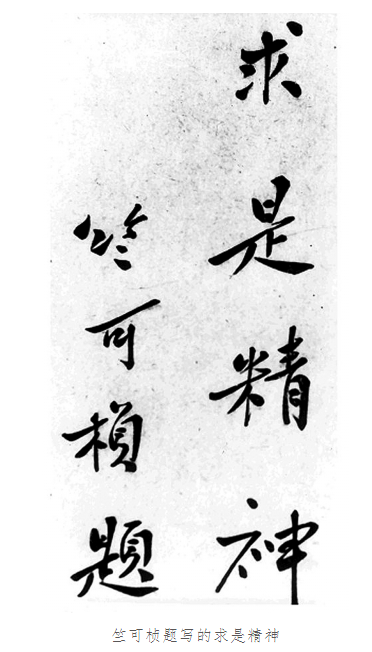 求是精神
竺可楨題
竺可桢题写的求是精神